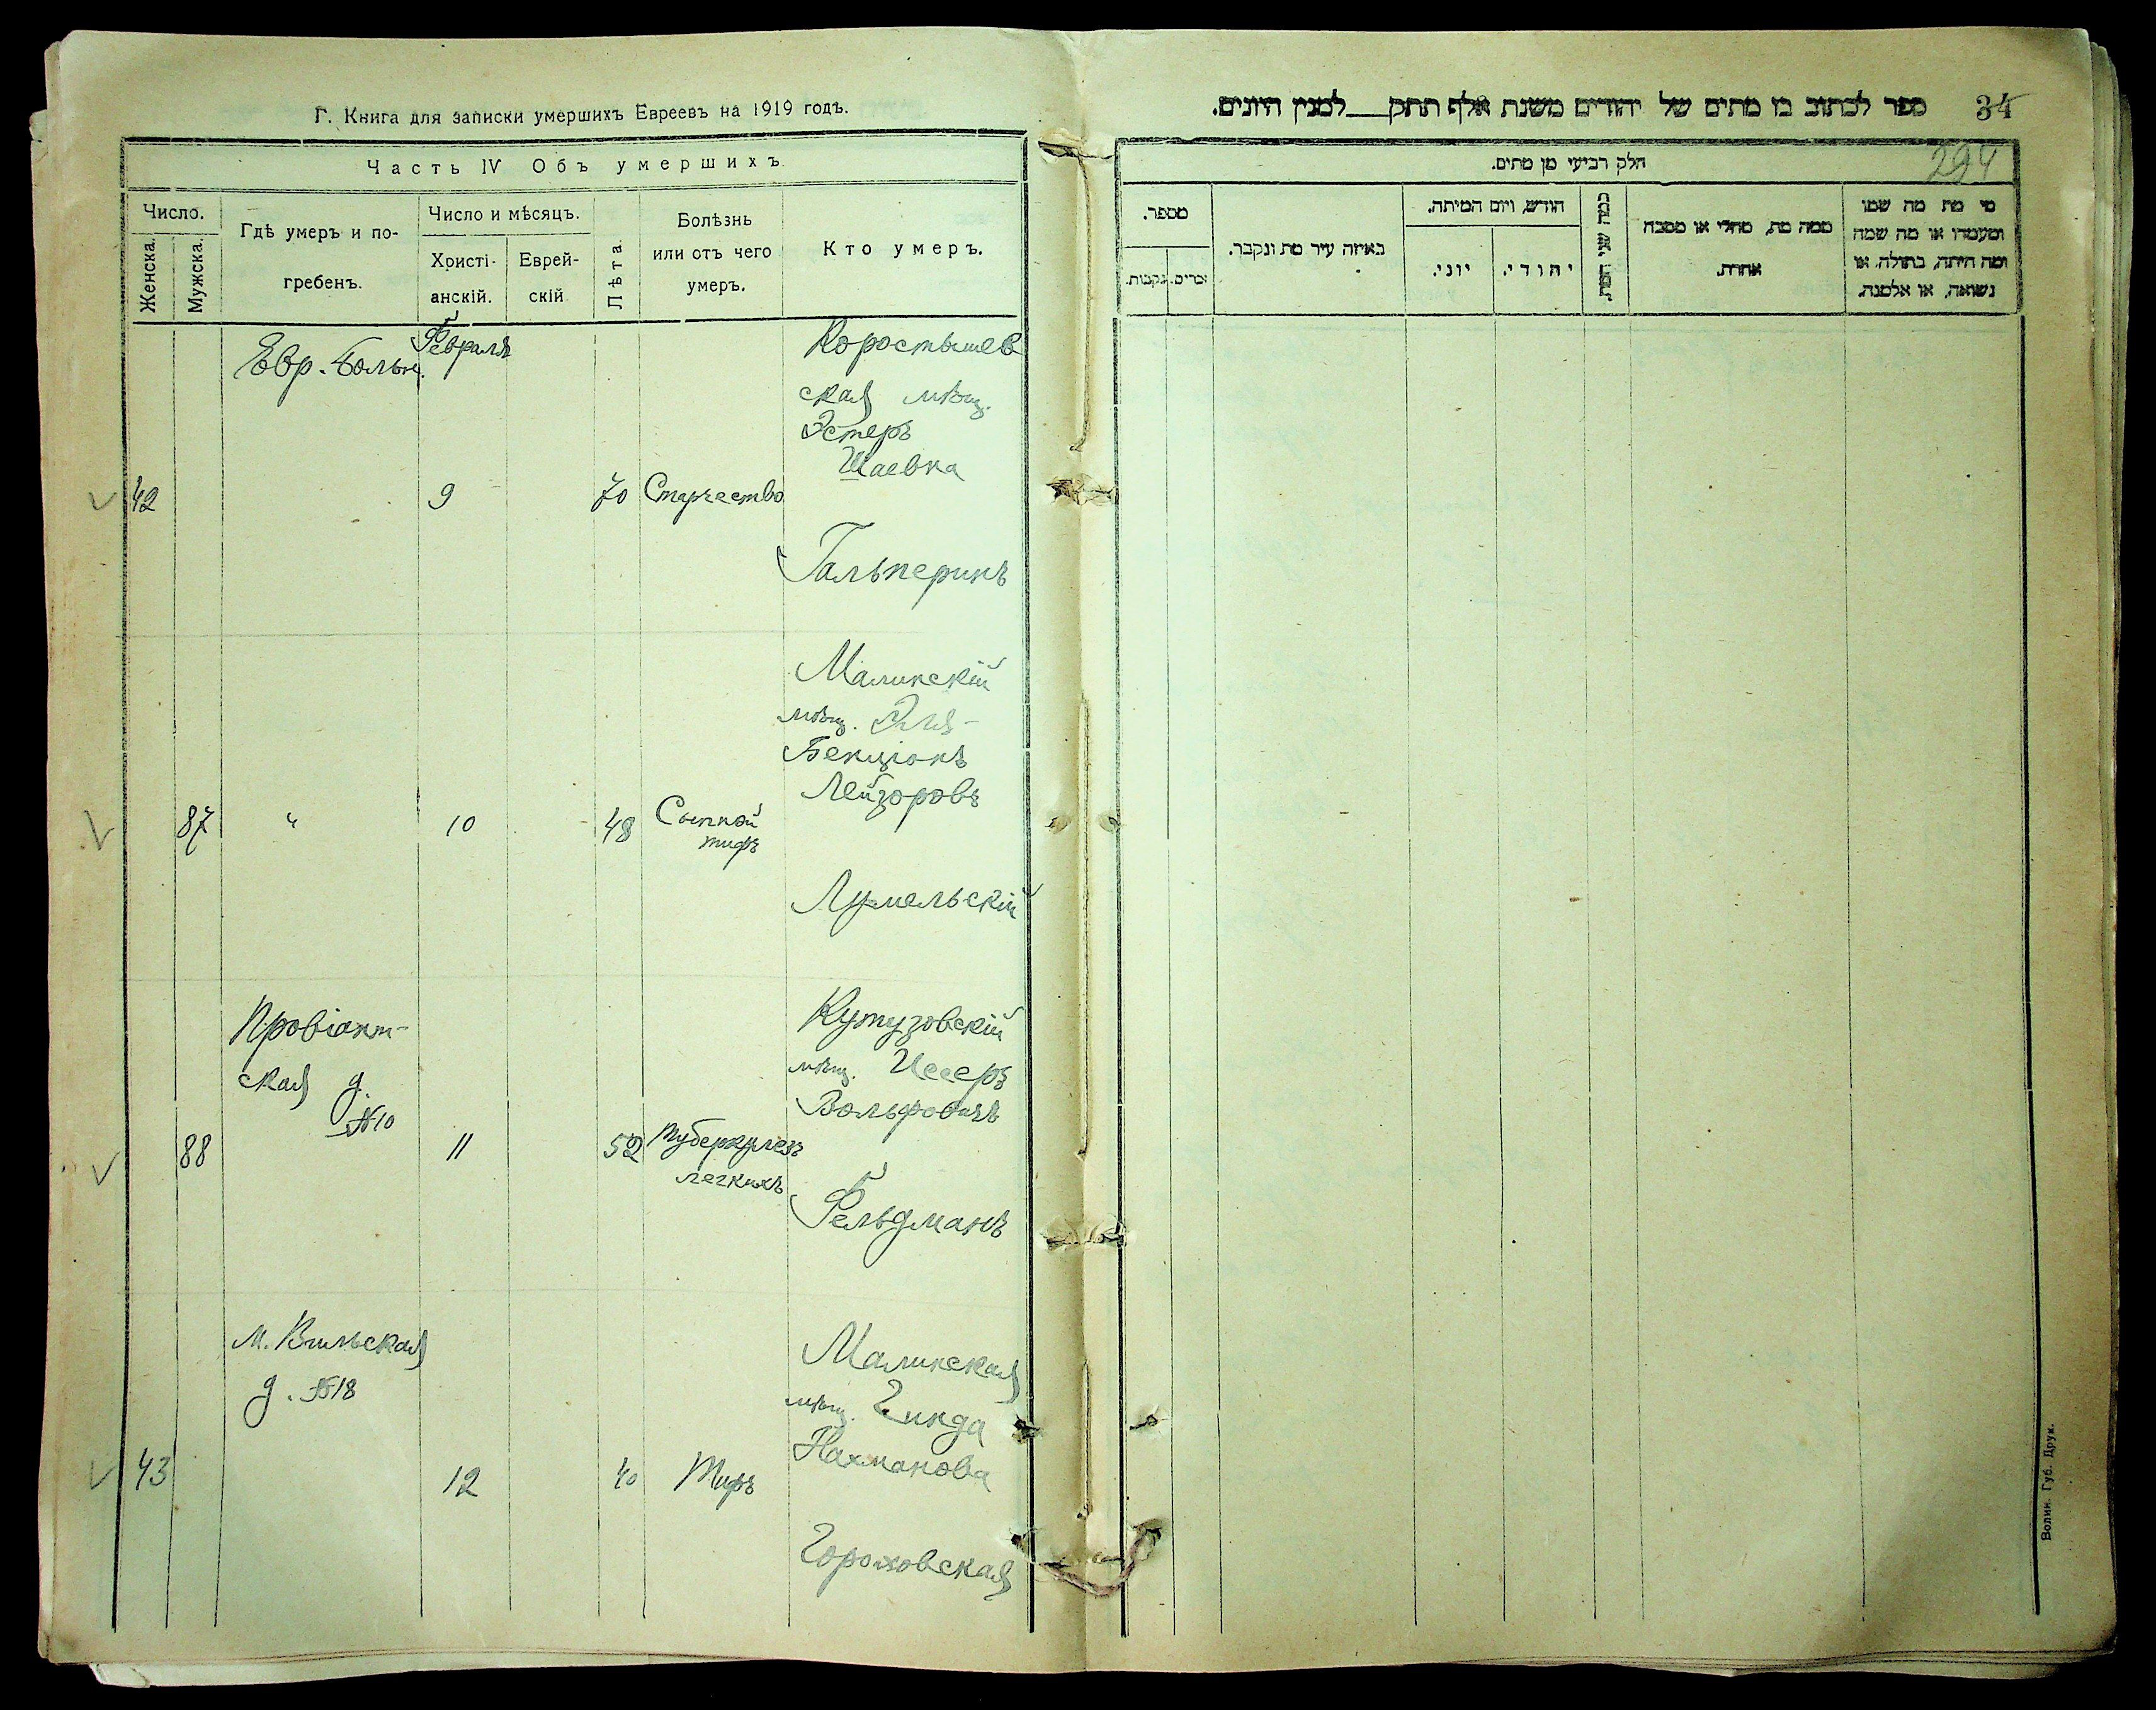 Г. Книга для записки умершихъ Евреевъ на 1919 годъ.
Часть IV Объ умершихъ
Число.
Женска.
Мужска.
Гдѣ умеръ и по-
гребенъ.
Число и мѣсяцъ.
Христі-
анскій.
Еврей-
скій
Лѣта
Болѣзнь
или отъ чего
умеръ.
Кто умеръ.
Евр. Больн.
Февраля
42
9
70
Старчество
Коростышев
ская мѣщ.
Эстеръ
Шаевна
Гальперинъ
87
"
10
48
Сыпной
тифъ
Малинскій
мѣщ. Эля-
Бенціонъ
Лейзоровъ
Лумельскій
Провіант-
ская д.
№10
88
11
52
Туберкулезъ
легкихъ
Кутузовскій
мѣщ. Иссеръ
Вольфовичъ
Фельдманъ
м. Вильская
д. №18
43
12
40
Тифъ
Малинская
мѣщ. Гинда
Нахманова
Гороховская
ספר לכתוב בו מתים של יהודים משנת אלף תתק___למנין היונים.
34
294
חלק רביעי מן מתים.
מספר.
זכרים.
נקבות.
באיזה עיר מת ונקבר.
חודש, ויום המיתה.
יוני.
יהודי.
כמה שני המת.
ממה מת, מחלי או מסבה
אחרת.
מי מת מה שמו
ומעמדו או מה שמה
ומה היתה, בתולה, או
נשואה, או אלמנה.
Волин. Губ. Друк.